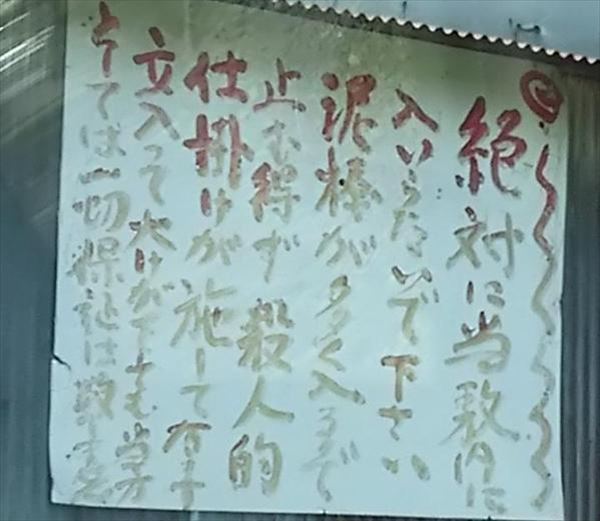 絶対に当敷内に
入いらないで下さい
泥棒が多く入るで
止む得ず 殺人的
仕掛けが施して有ます
立入って大けがしても当方
としては一切保証は致ませ